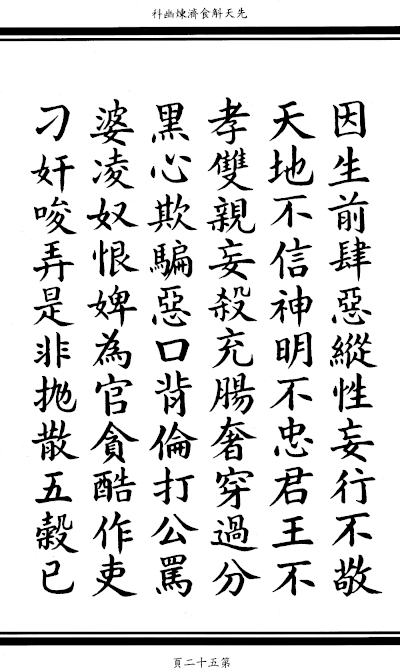 先天斛食濟煉幽科
因生前肆惡縱性妄行不敬
天地不信神明不忠君王不
孝雙親妄殺充腸奢穿過分
黑心欺騙惡口背倫打公罵
婆凌奴恨婢為官貪酷作吏
刁奸唆弄是非拋散五穀已
第五十二頁